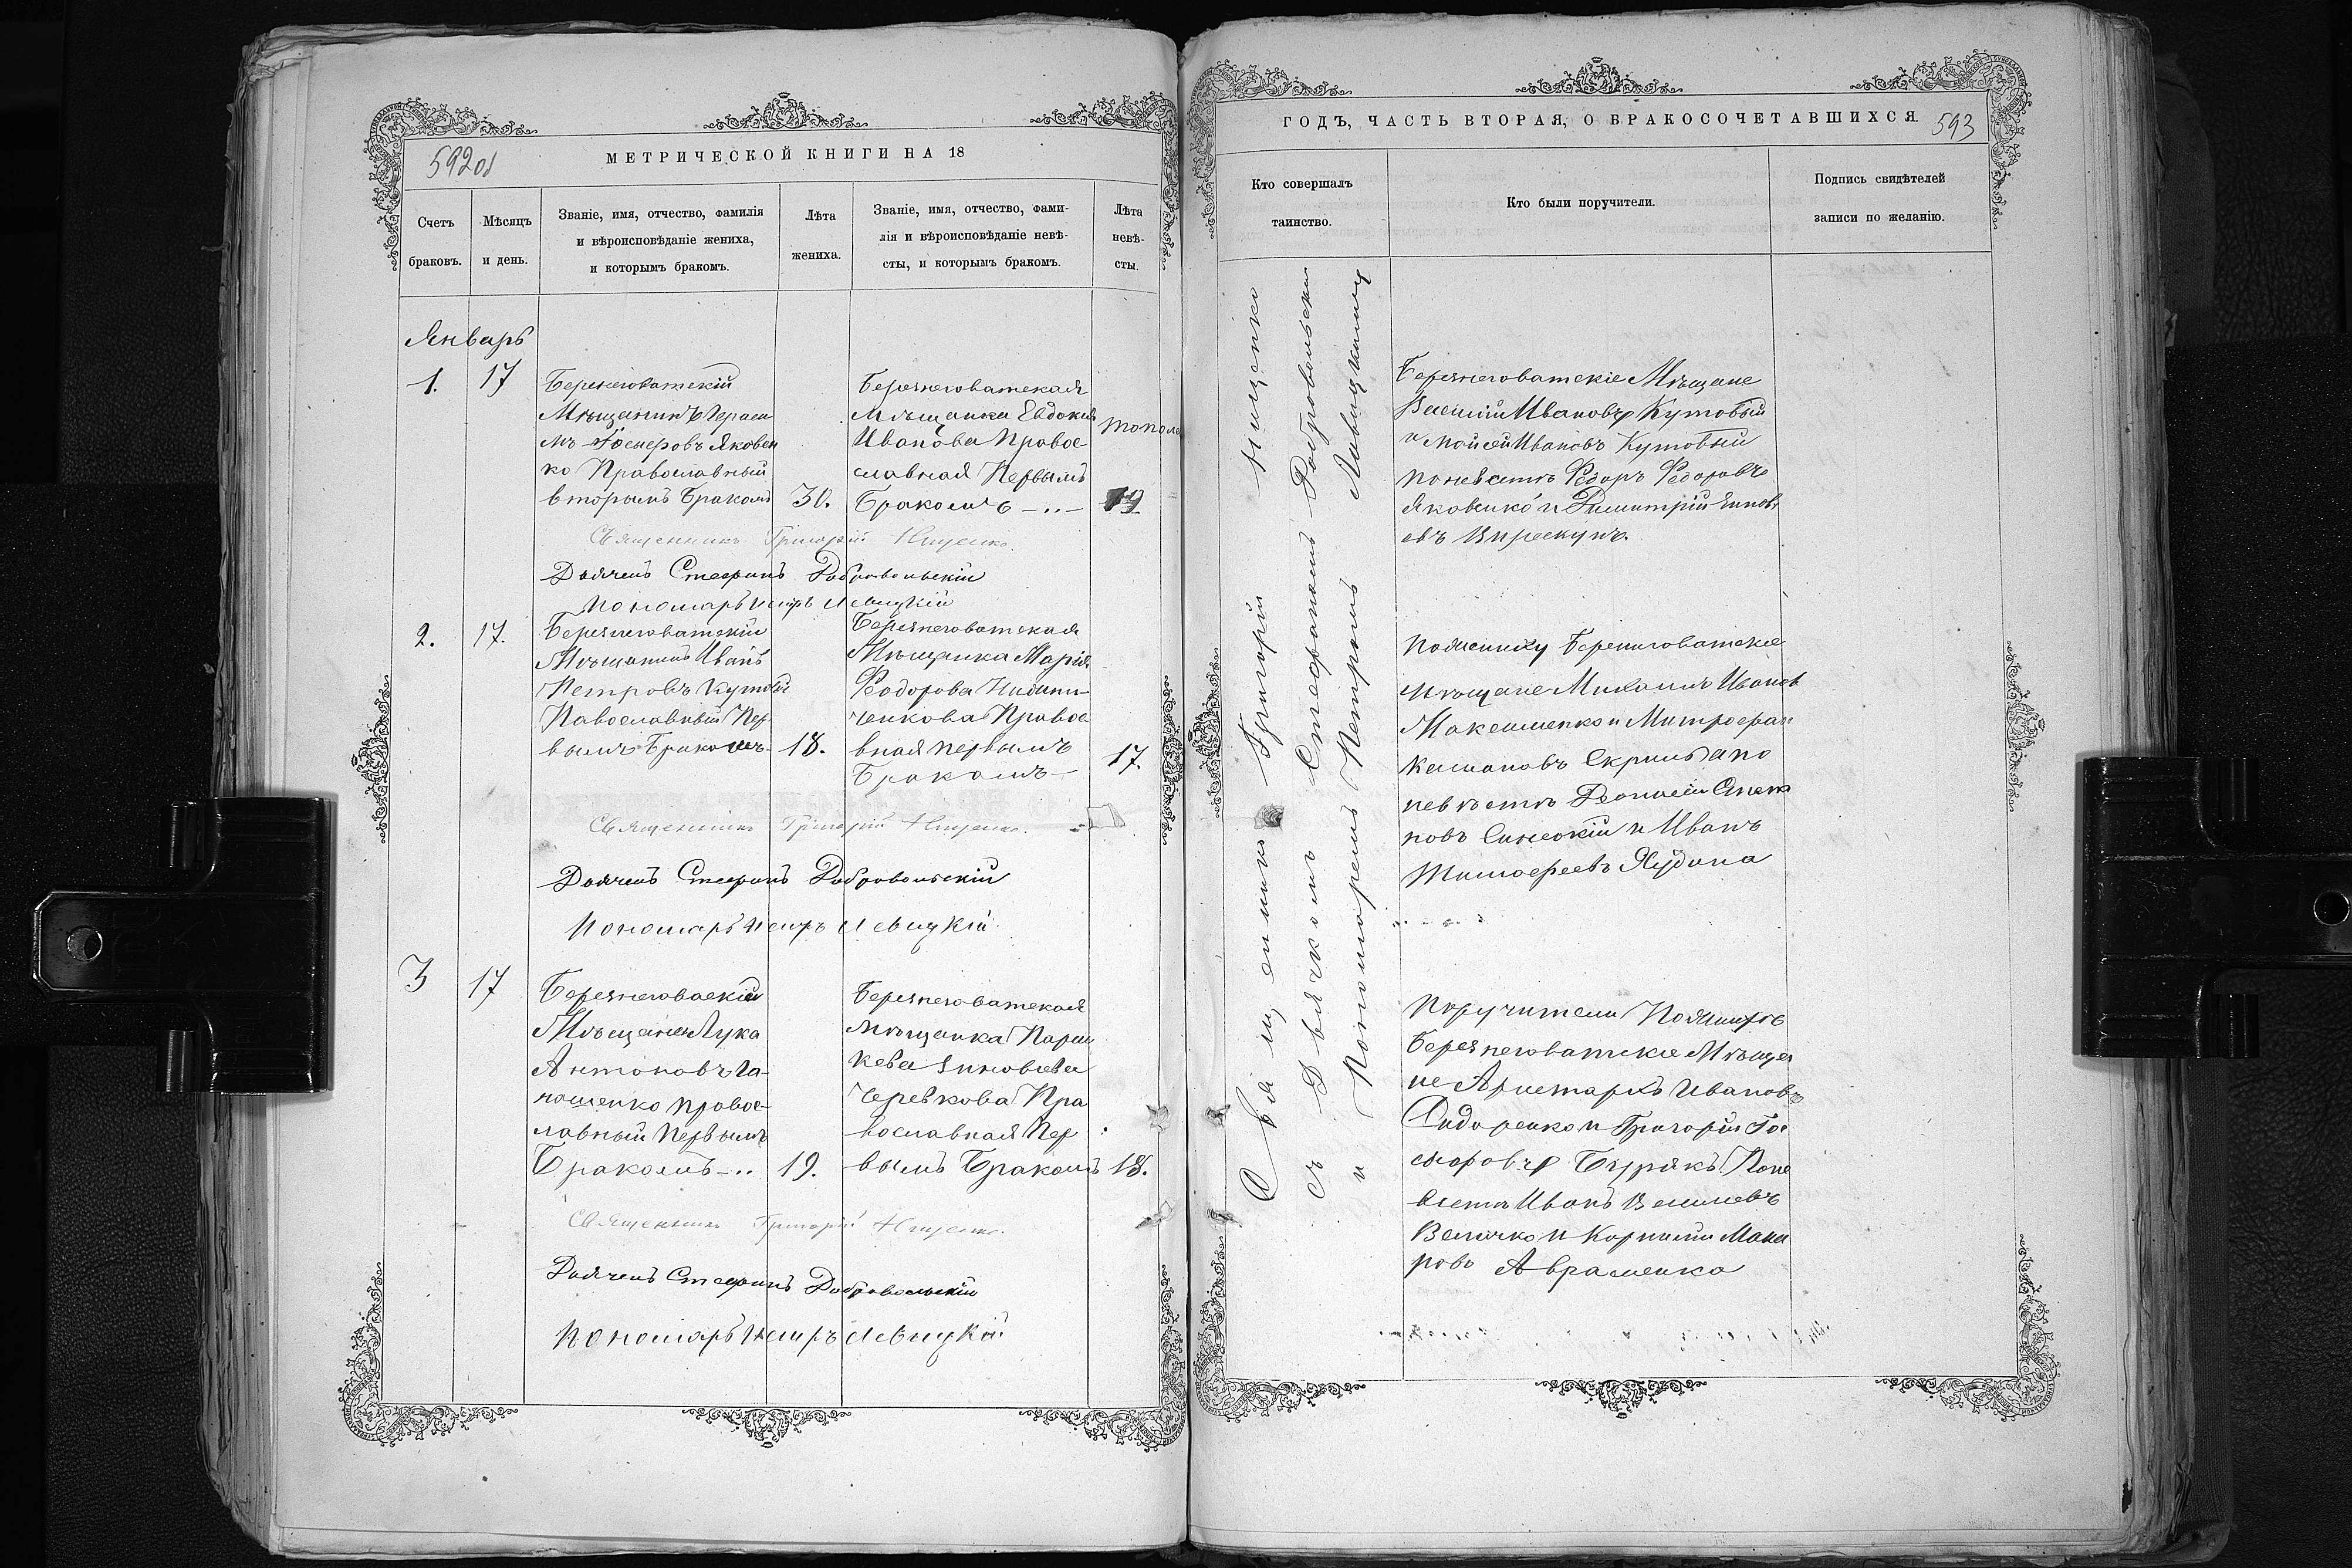 592об
МЕТРИЧЕСКОЙ КНИГИ НА 18
Счетъ браковъ.
Мѣсяцъ и день.
Званіе, имя, отчество, фамилія
и вѣроисповѣданіе жениха,
и которымъ бракомъ.
Лѣта
жениха.
Званіе, имя, отчество, фами-
лія и вѣроисповѣданіе невѣ-
сты, и которымъ бракомъ.
Лѣта
невѣ-
сты.
Январь
1.
17
Березнеговатскій
Мѣщанинъ Гераси
мъ Яковен
ко Православный
вторымъ Бракомъ
30.
Березнеговатская
Мѣщанка Евдокия
Иванова Правос-
славная Первымъ
Бракомъ
19
Священникъ Григорій Нищенко.
Дьячекъ Стефанъ Добровольскій
Пономарь Петръ Левицкій
2.
17.
Березнеговатскій
Мѣщанинъ Иванъ
Петровъ Кутовый
Павославный Пер
вымъ Бракомъ
18.
Березнеговатская
Мѣщанка Марія
Феодорова
ченкова Правос
вная первымъ
Бракомъ
17.
Священникъ Григорій Нищенко.
Дьячекъ Стефанъ Добровольскій
Пономарь Петръ Левицкій
3
17
Березнеговаскій
Мѣщанин Лука
Антоновъ Га-
пошенко правос-
лавный Первымъ
Бракомъ
19.
Березнеговатская
мѣщанка Парас
кева Зиновіева
Черевкова Пра
вославная Пер
вымъ Бракомъ
18.
Священникъ Григорій Нищенко.
Дьячекъ Стефанъ Добровольскій
Пономарь Петръ Левицкій
ГОДЪ, ЧАСТЬ ВТОРАЯ, О БРАКОСОЧЕТАВШИХСЯ
593
Кто совершалъ
таинство.
Кто были поручители.
Подпись свидѣтелей
записи по желанію.
Священникъ Григорій Нищенко
съ Дьячкомъ Стефаномъ Добровольски
и Пономаремъ Петромъ Левицкимъ
Березнеговатскіе Мѣщане
Василій Ивановъ Кутовый
и Мойсей Ивановъ Кутовый
по невѣстѣ Федоръ Федоровъ
Яковенко и Димитрій
евъ
по жениху Березнеговатскіе
мѣщане Михаилъ Иванов
Максименко и Митрофан
а по
невѣстѣ
новъ и Иванъ
Тимофеевъ
Поручители По жениху
Березнеговатскіе Мѣща
не Аристархъ Ивановъ
Сидоренко и Григорій
Бурякъ По не
вѣстѣ Иванъ Василиевъ
Величко и Корнилій Мака
ровъ Авраменко